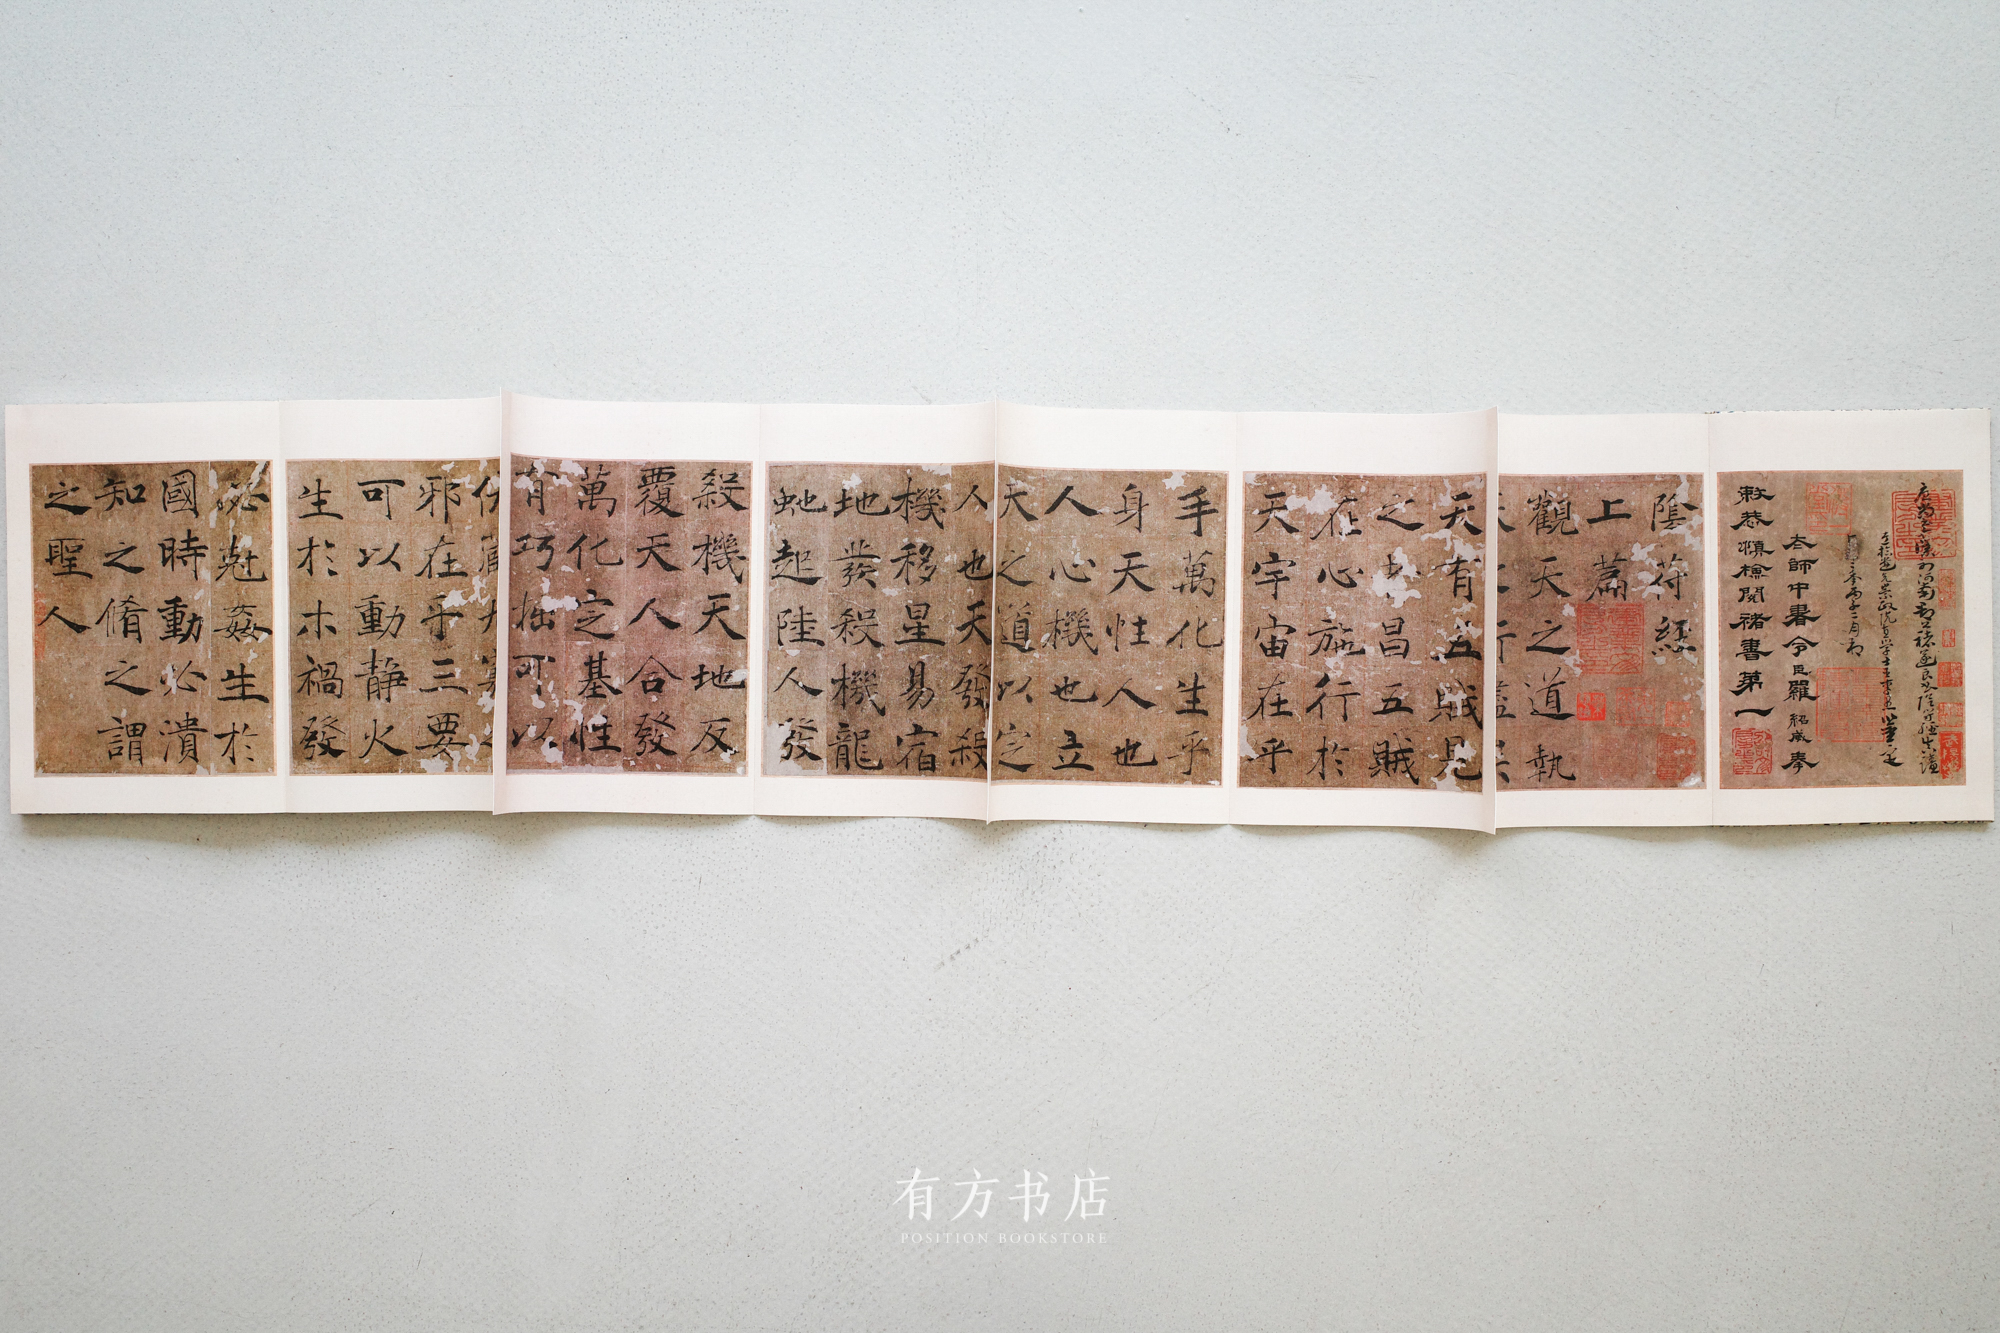 太師中書令臣羅紹威奉
敕恭慎撿閱褚書第一
陰符經
上篇
觀天之道執
天有五賊見
之者昌五賊
在心施行於
天宇宙在乎
手萬化生乎
身天性人也
人心機也立
天之道以定
人也天發殺
機移星易宿
地發殺機龍
虵起陸人發
殺機天地反
覆天人合發
萬化定基性
有巧拙可以
邪在乎三要
可以動靜火
生於木禍發
必尅姦生於
國時動必潰
知之脩之謂
之聖人
有方书店
POSITION BOOKSTORE